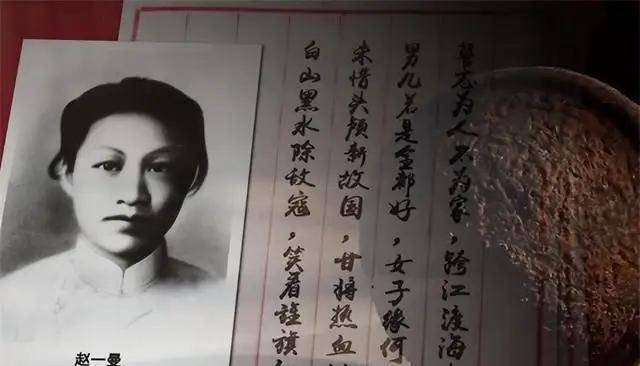 誓志为人不为家，跨江渡海
男儿若是全都好，女子缘何
未惜头颅新故国，甘将热血
白山黑水除敌寇，笑看旌旗
赵一曼